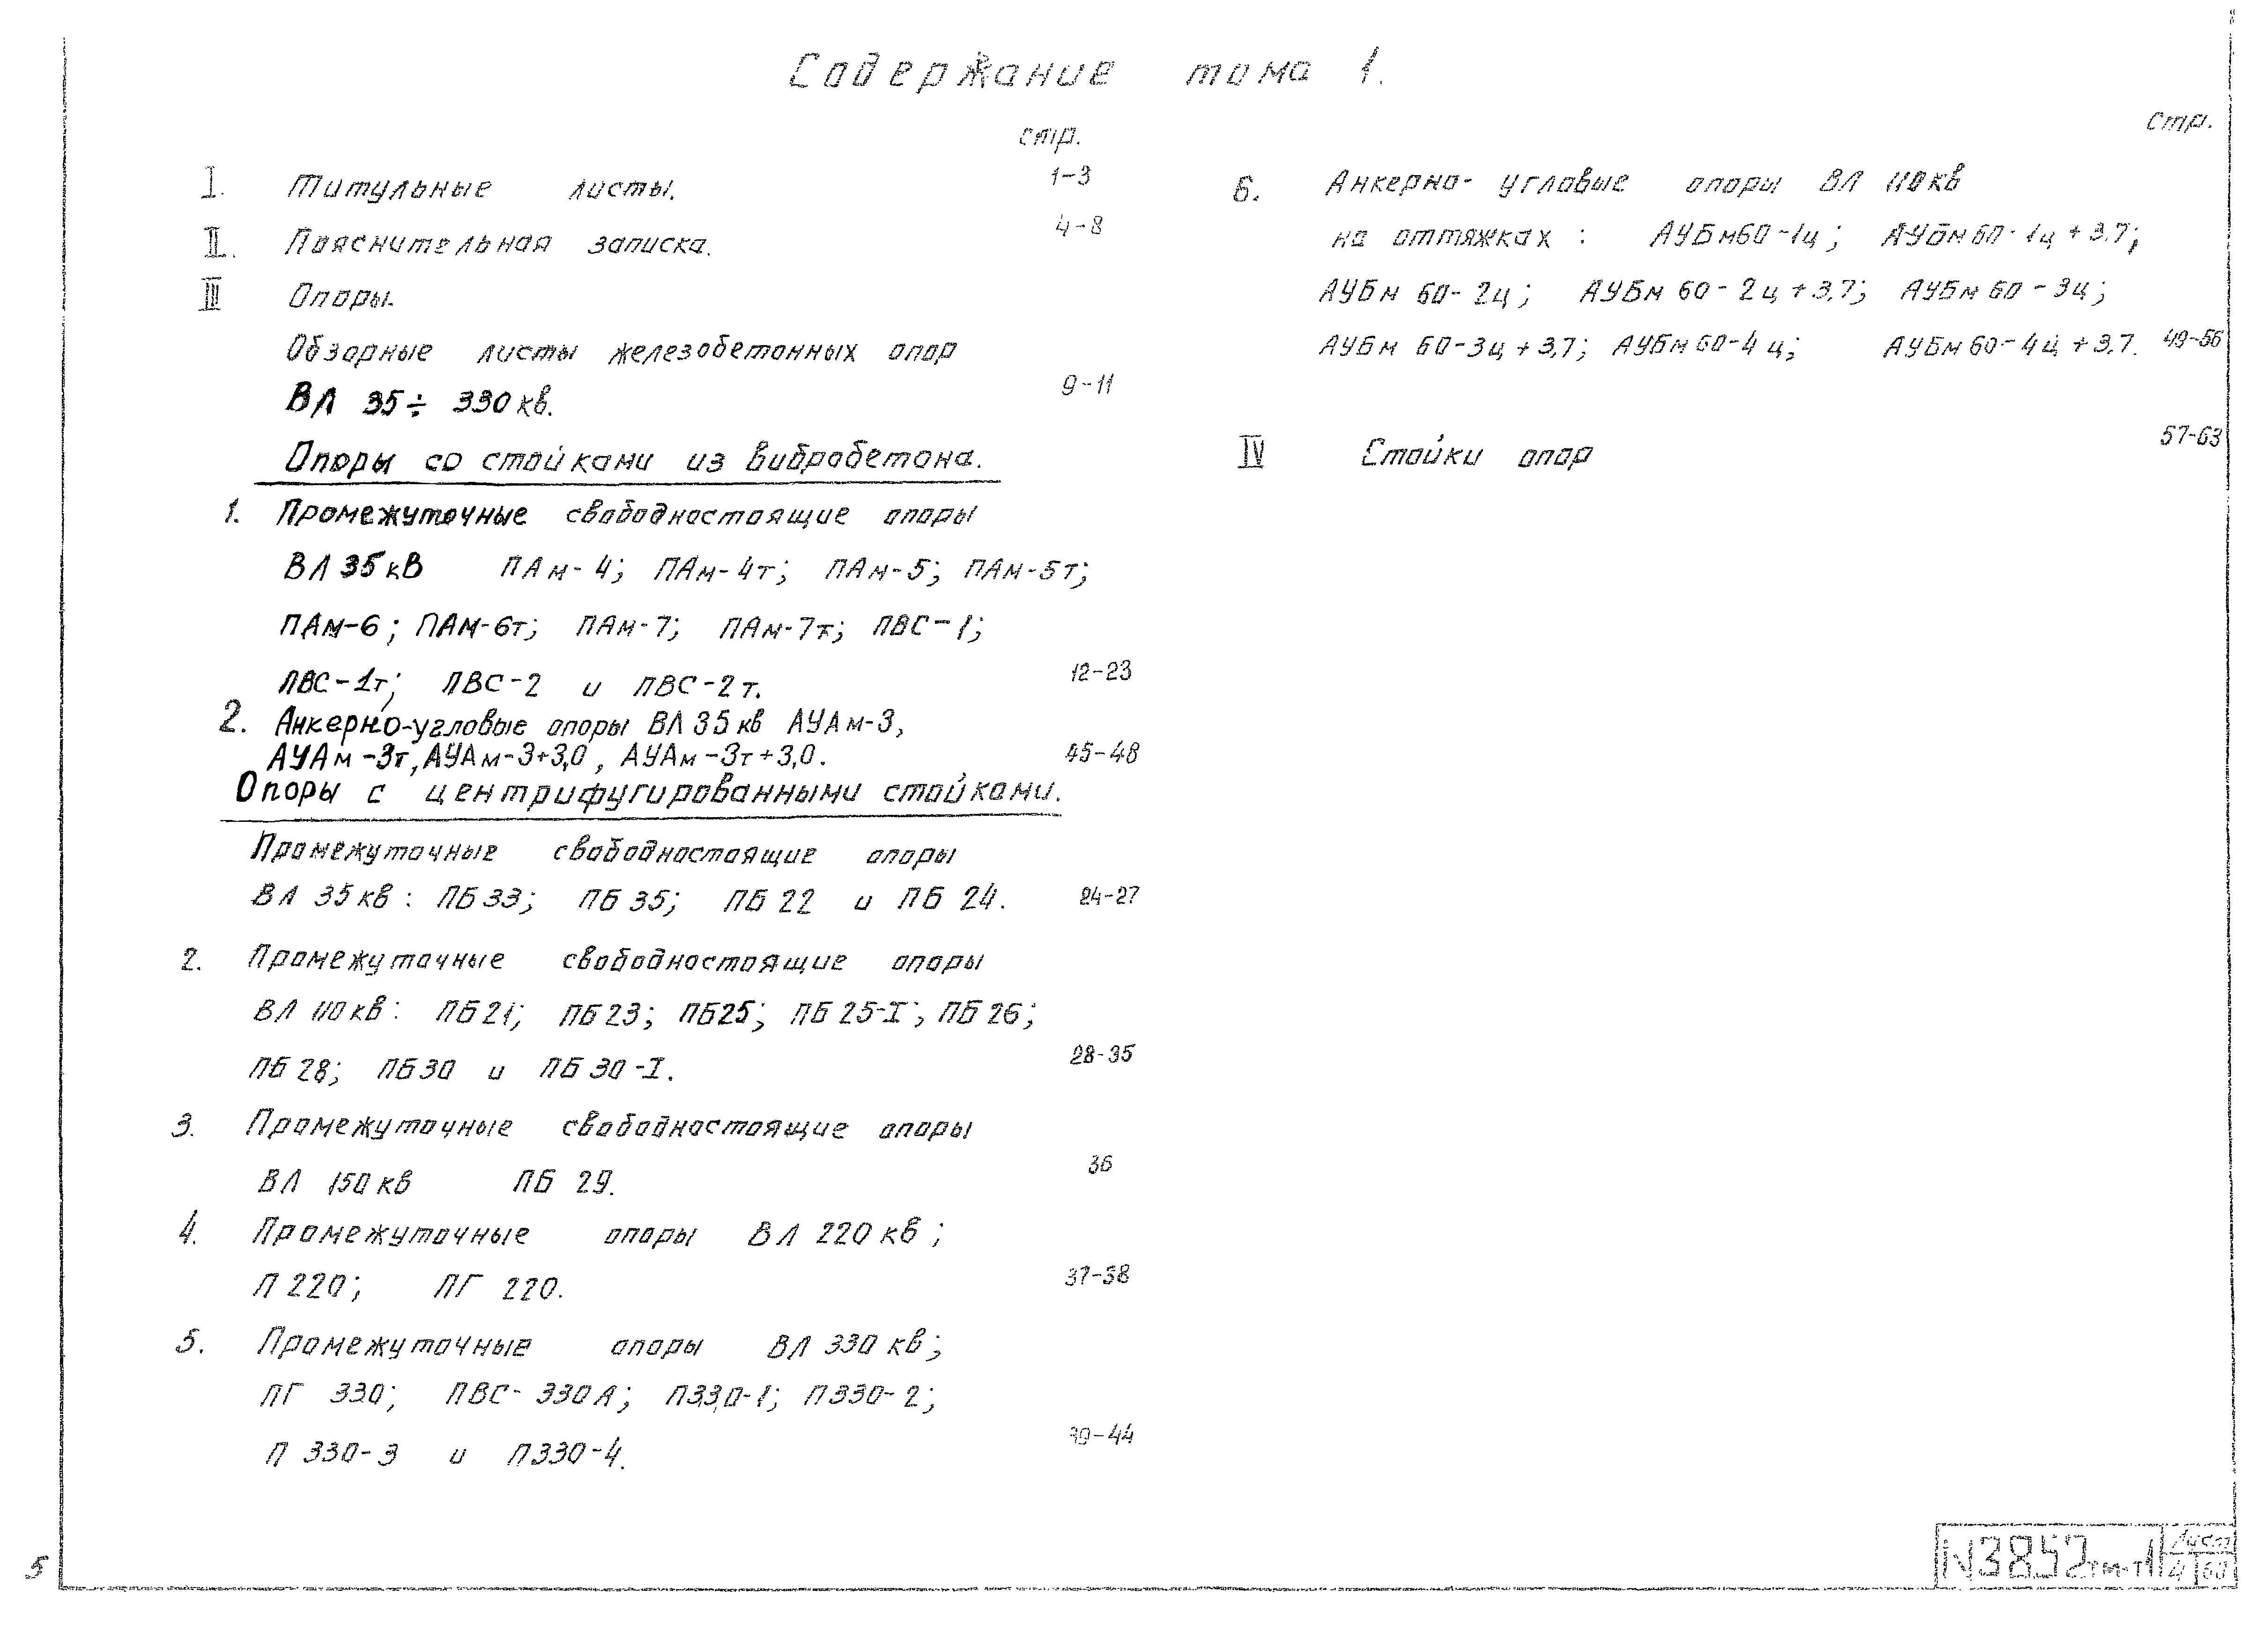 Содержание тома 1.
стр.
I. Титульные листы. 1-3
II. Пояснительная записка. 4-8
III Опоры.
Обзорные листы железобетонных опор
ВЛ 35÷ 330 кв. 9-11
Опоры со стойками из вибробетона.
1. Промежуточные свободностоящие опоры
ВЛ 35 кВ ПАм-4; ПАм-4т; ПАм-5; ПАм-5т;
ПАм-6; ПАм-6т; ПАм-7; ПАм-7т; ПВС-1;
ПВС-1т; ПВС-2 и ПВС-2т. 12-23
2. Анкерно-угловые опоры ВЛ 35 кв АУАм-3,
АУАм-3т, АУАм-3+3,0, АУАм-3т+3,0. 45-48
Опоры с центрифугированными стойками.
Промежуточные свободностоящие опоры
ВЛ 35 кв: ПБ 33; ПБ 35; ПБ 22 и ПБ 24. 24-27
2. Промежуточные свободностоящие опоры
ВЛ 110 кв: ПБ 21; ПБ 23; ПБ25; ПБ 25-I; ПБ 26;
ПБ 28; ПБ30 и ПБ 30-I. 28-35
3. Промежуточные свободностоящие опоры
ВЛ 150 кв ПБ 29. 36
4. Промежуточные опоры ВЛ 220 кв;
П 220; ПГ 220. 37-38
5. Промежуточные опоры ВЛ 330 кв;
ПГ 330; ПВС-330А; П330-1; П330-2;
П 330-3 и П330-4. 39-44
стр.
6. Анкерно-угловые опоры ВЛ 110 кв
на оттяжках: АУБм60-1ц; АУБм60-1ц+3.7;
АУБм 60-2ц; АУБм 60-2ц+3,7; АУБм 60-3ц;
АУБм 60-3ц+3,7; АУБм 60-4ц; АУБм 60-4ц+3.7. 49-56
IV Стойки опор 57-63
5
N3852тм-т1
4 63